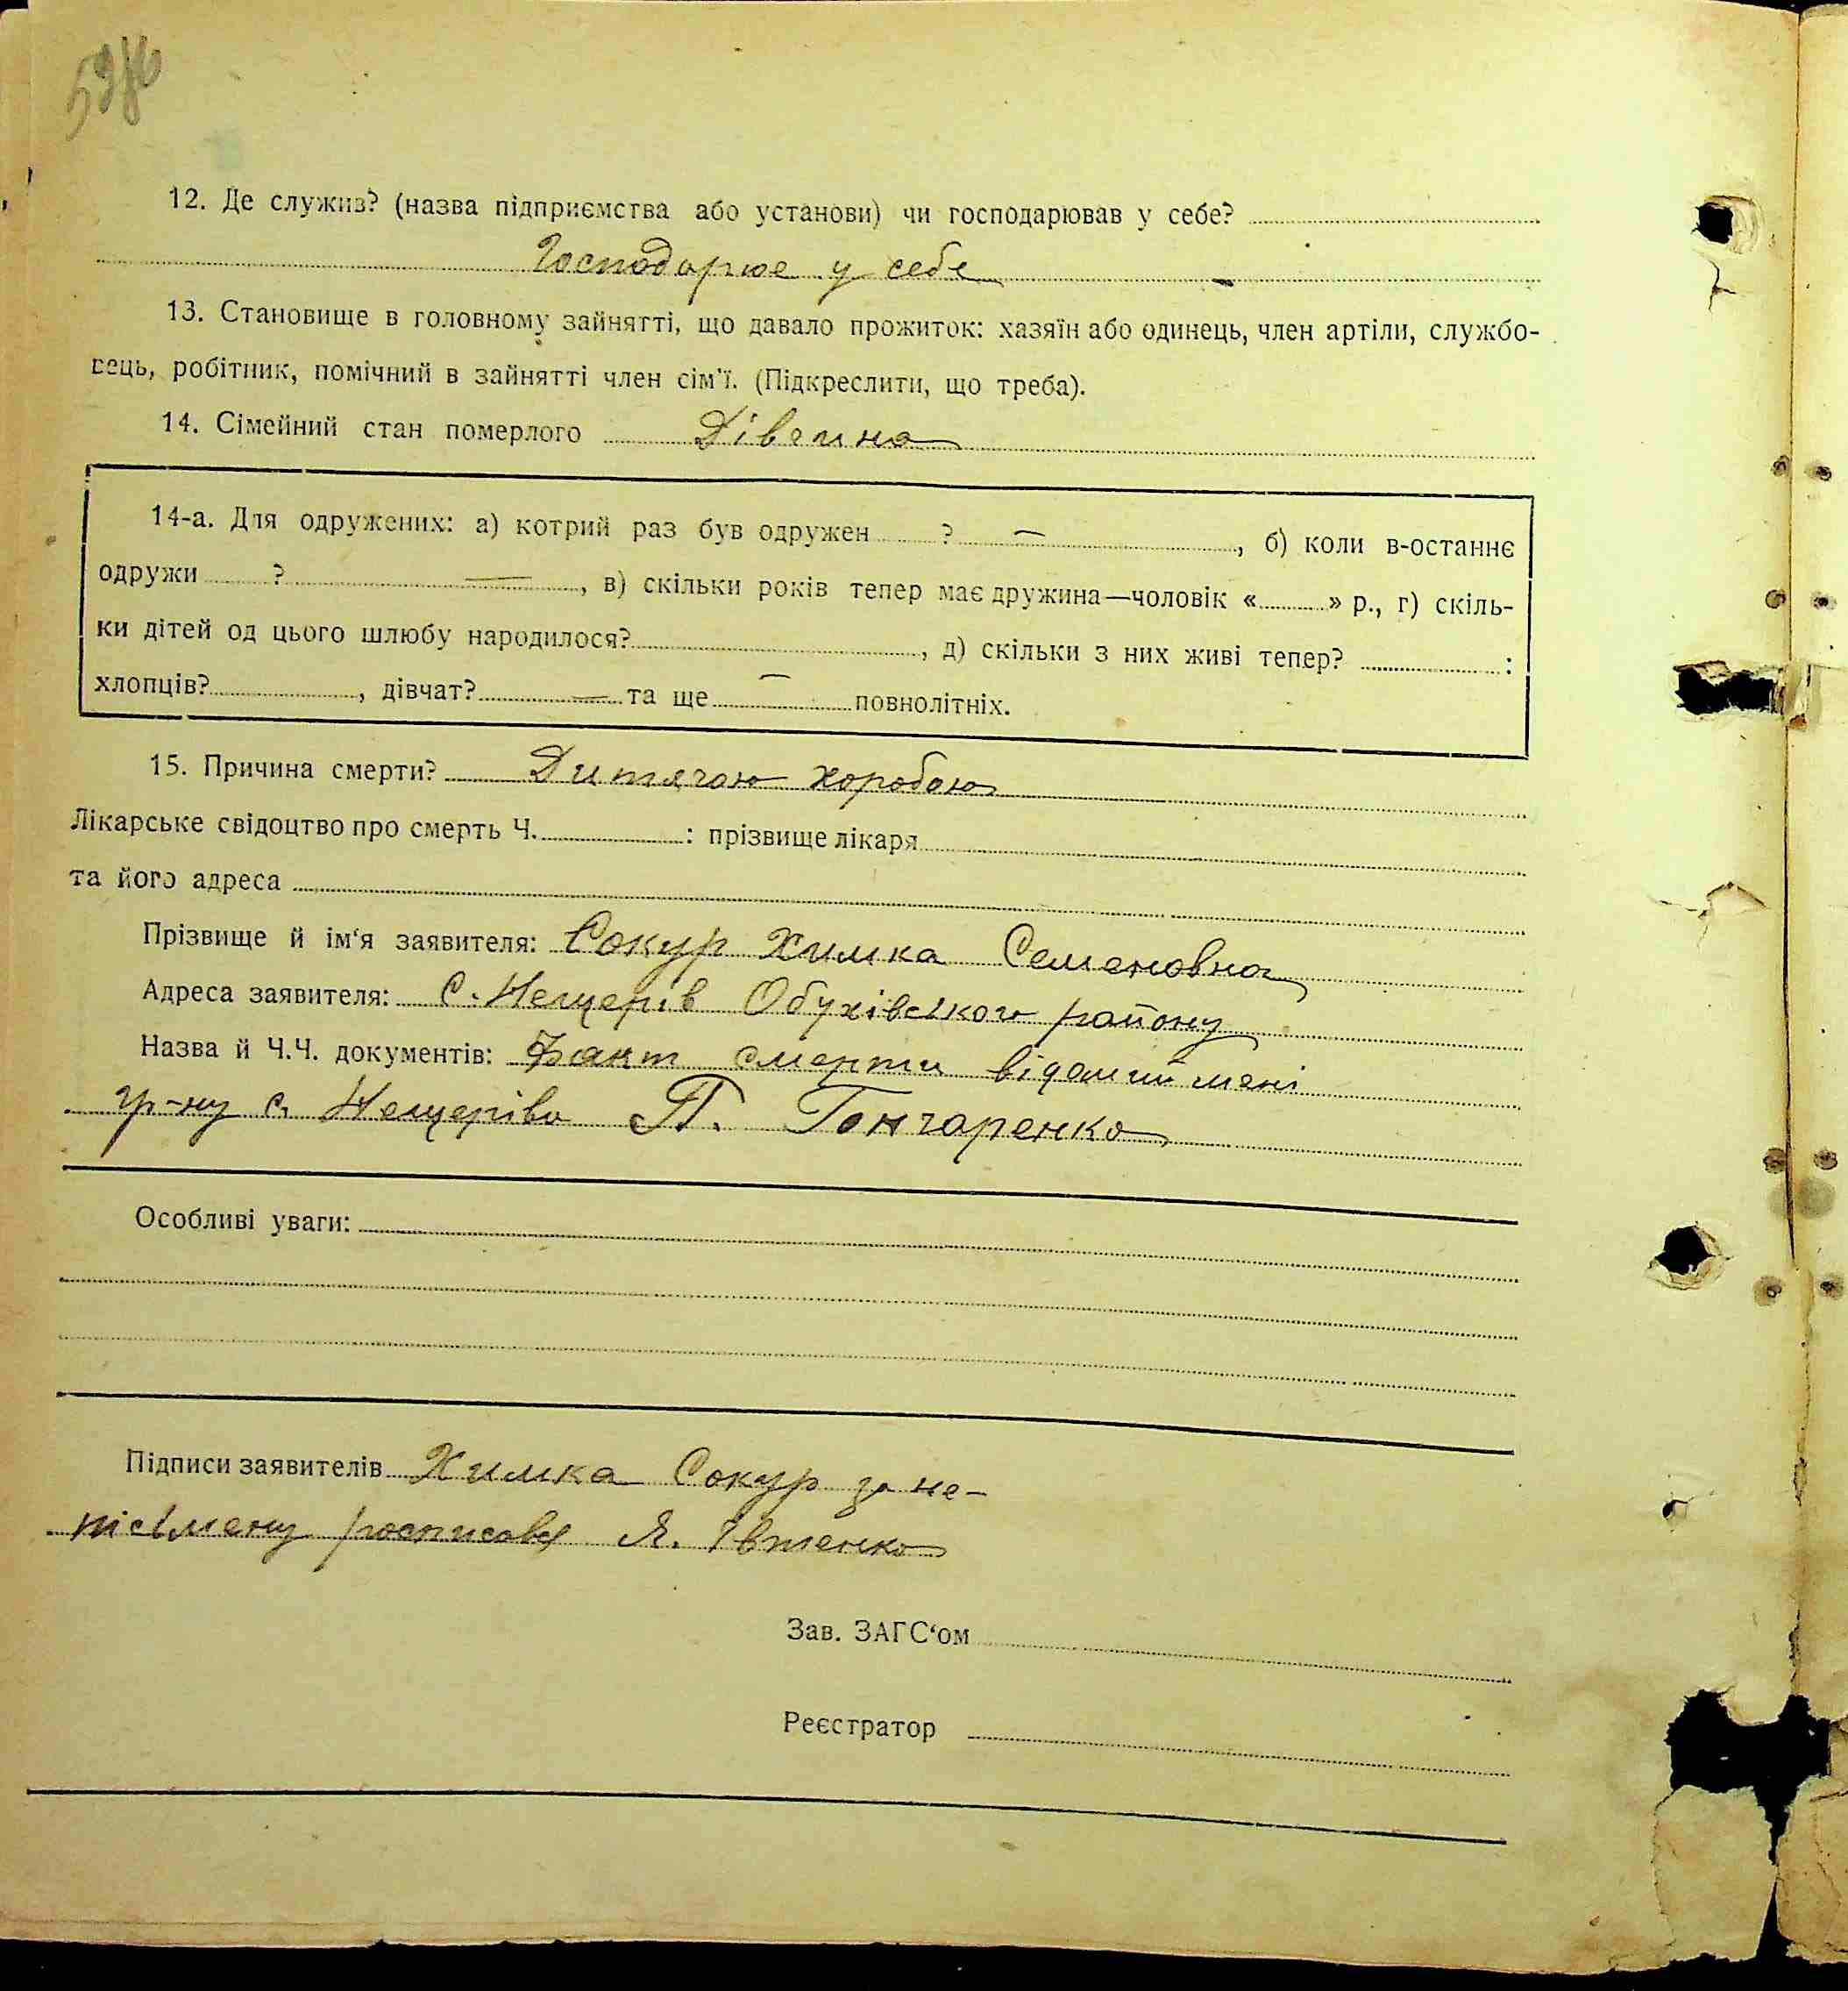 12. Де служив? (назва підприємства або установи) чи господарював у себе?
Господарює у себе
13. Становище в головному зайнятті, що давало прожиток: хазяїн або одинець, член артіли, службо-
вець, робітник, помічний в зайнятті член сім'ї. (Підкреслити, що треба).
14. Сімейний стан померлого Дівчина
14-а. Для одружених: а) котрий раз був одружен ? —, б) коли в-останнє
одружи ? —, в) скільки років тепер має дружина—чоловік « » р., г) скіль-
ки дітей од цього шлюбу народилося? , д) скільки з них живі тепер? :
хлопців? , дівчат? — та ще — повнолітніх.
15. Причина смерти? Дитячою хоробою
Лікарське свідоцтво про смерть Ч. : прізвище лікаря
та його адреса
Прізвище й ім'я заявителя: Сокур Химка Семеновна
Адреса заявителя: С. Нещерів Обухівського району
Назва й Ч.Ч. документів: Факт смерти відомий мені
гр-ну с. Нещерівa П. Гончаренко
Особливі уваги:
Підписи заявителів Химка Сокур за не-
письмену росписовся Я. Івтенко
Зав. ЗАГС'ом
Реєстратор